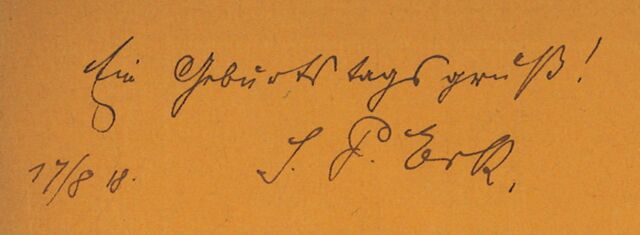 Ein Geburtstagsgruß!
S. P. Erk.
17/8 18.